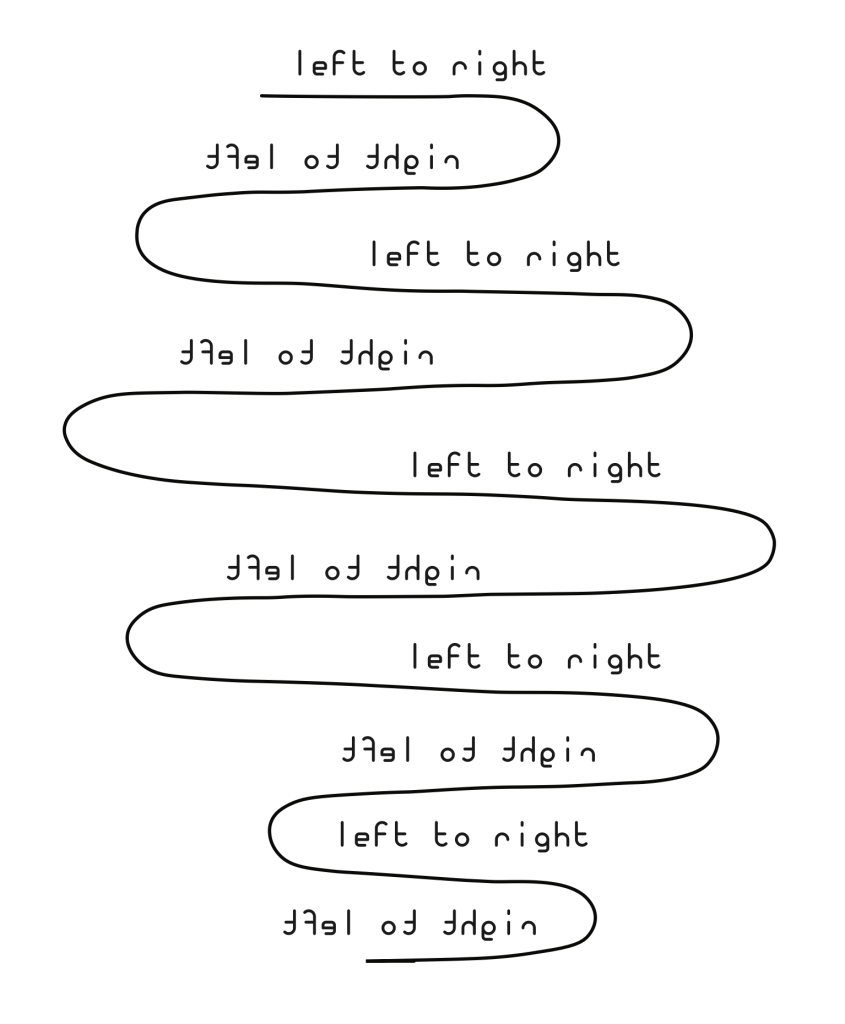 left to right
right to left
left to right
right to left
left to right
right to left
left to right
right to left
left to right
right to left